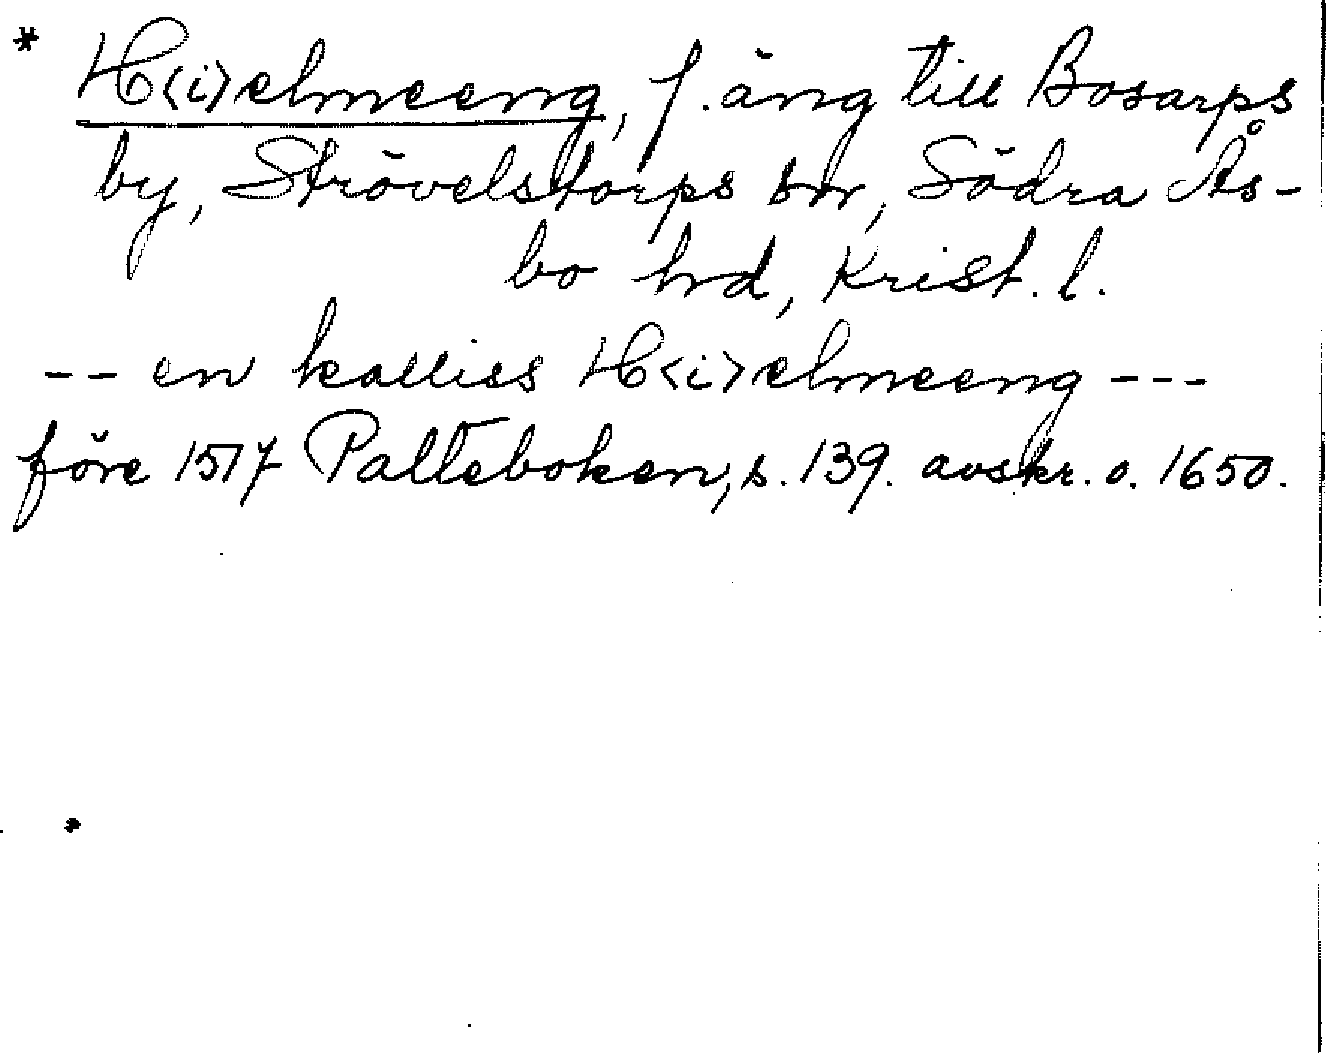 * H<i>elmeeng, f. äng till Bosarps
by, Strövelstorps sn, Södra Ås-
bo hd, Krist. l.
-- en kalliss H<i>elmeeng ---
före 1517 Palteboken, s. 139. avskr. o. 1650.